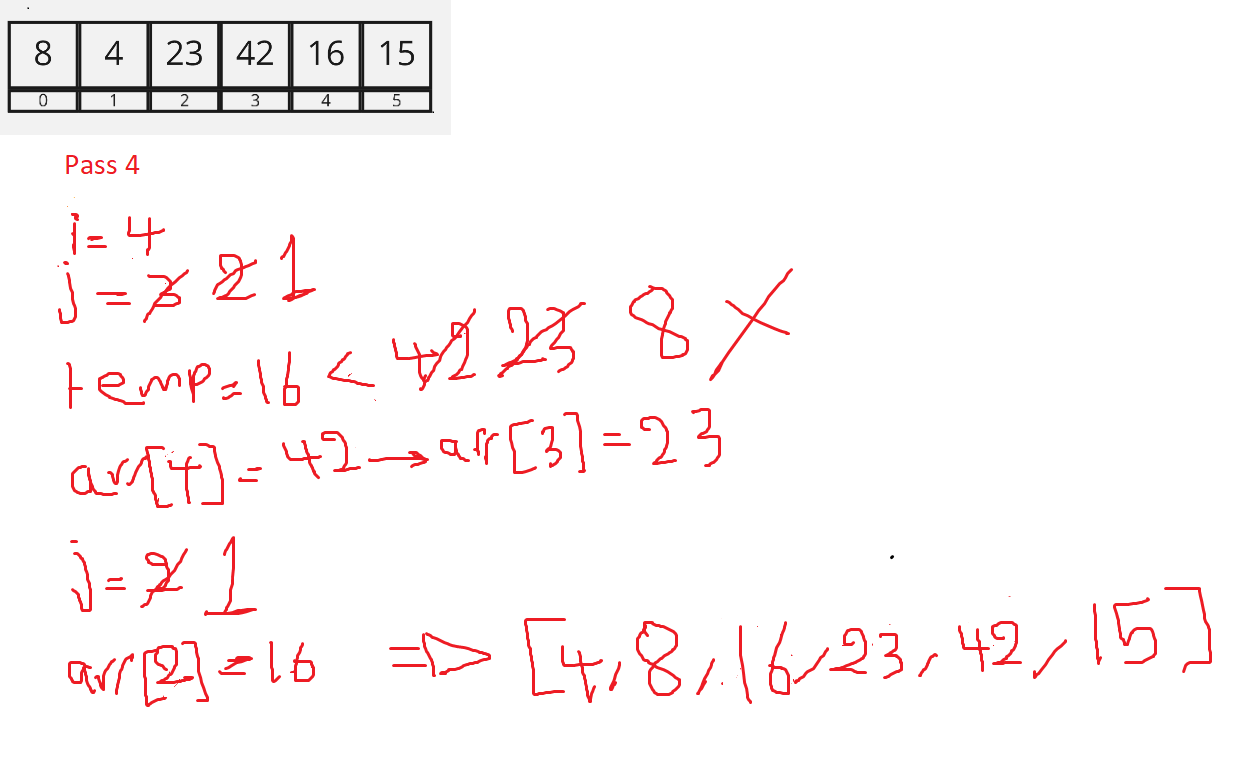 8 4 23 42 16 15
0 1 2 3 4 5
Pass 4
i = 4
j = 3 2 1
temp = 16 < 42 23 8 X
arr[4] = 42 → arr[3] = 23
j = 2 1
arr[2] = 16 ⇒ [4, 8, 16, 23, 42, 15]